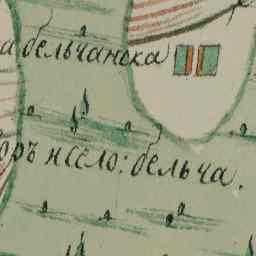 а бельчанска
оръ н село: бельча.